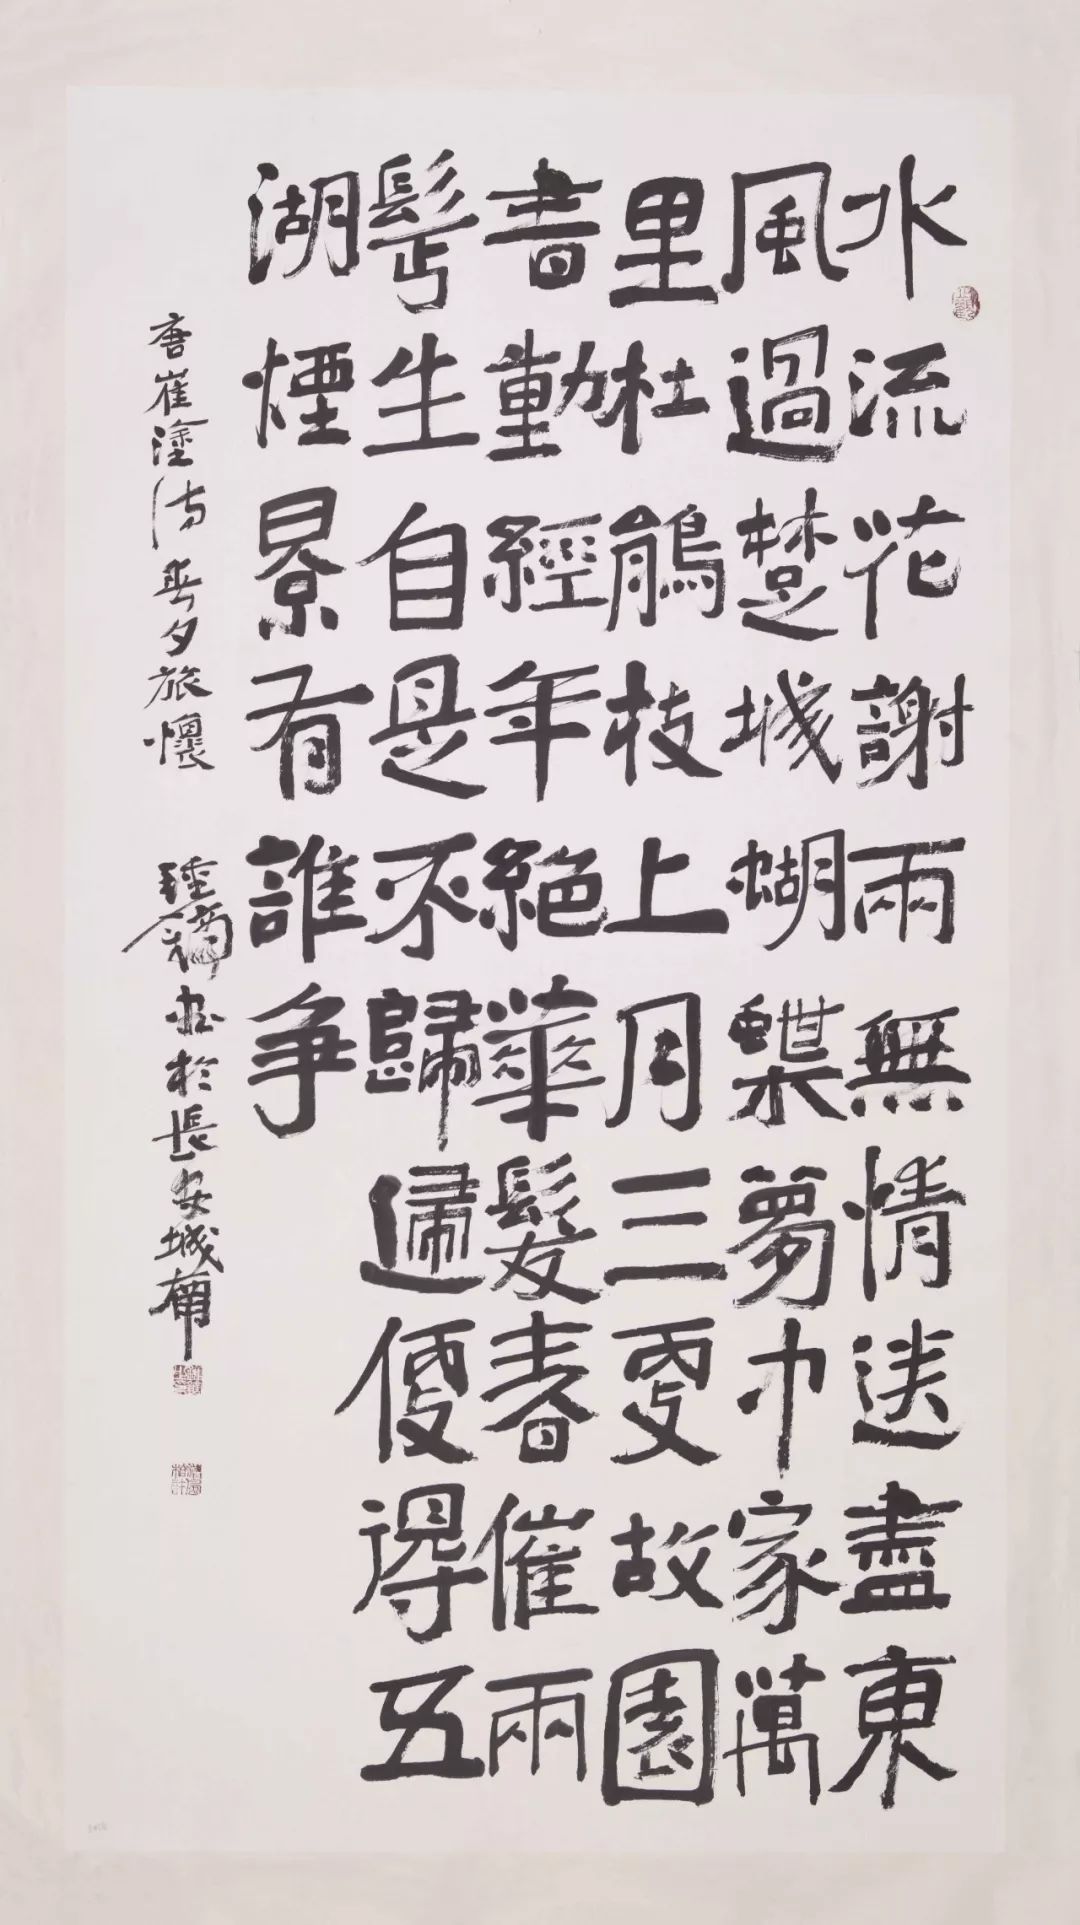 水流花謝兩無情送盡東
風過楚城蝴蝶夢中家萬
里杜鵑枝上月三更故園
書動經年絕華髮春催兩
鬢生自是不歸歸便得五
湖煙景有誰爭
唐崔塗詩春夕旅懷 書於長安城南